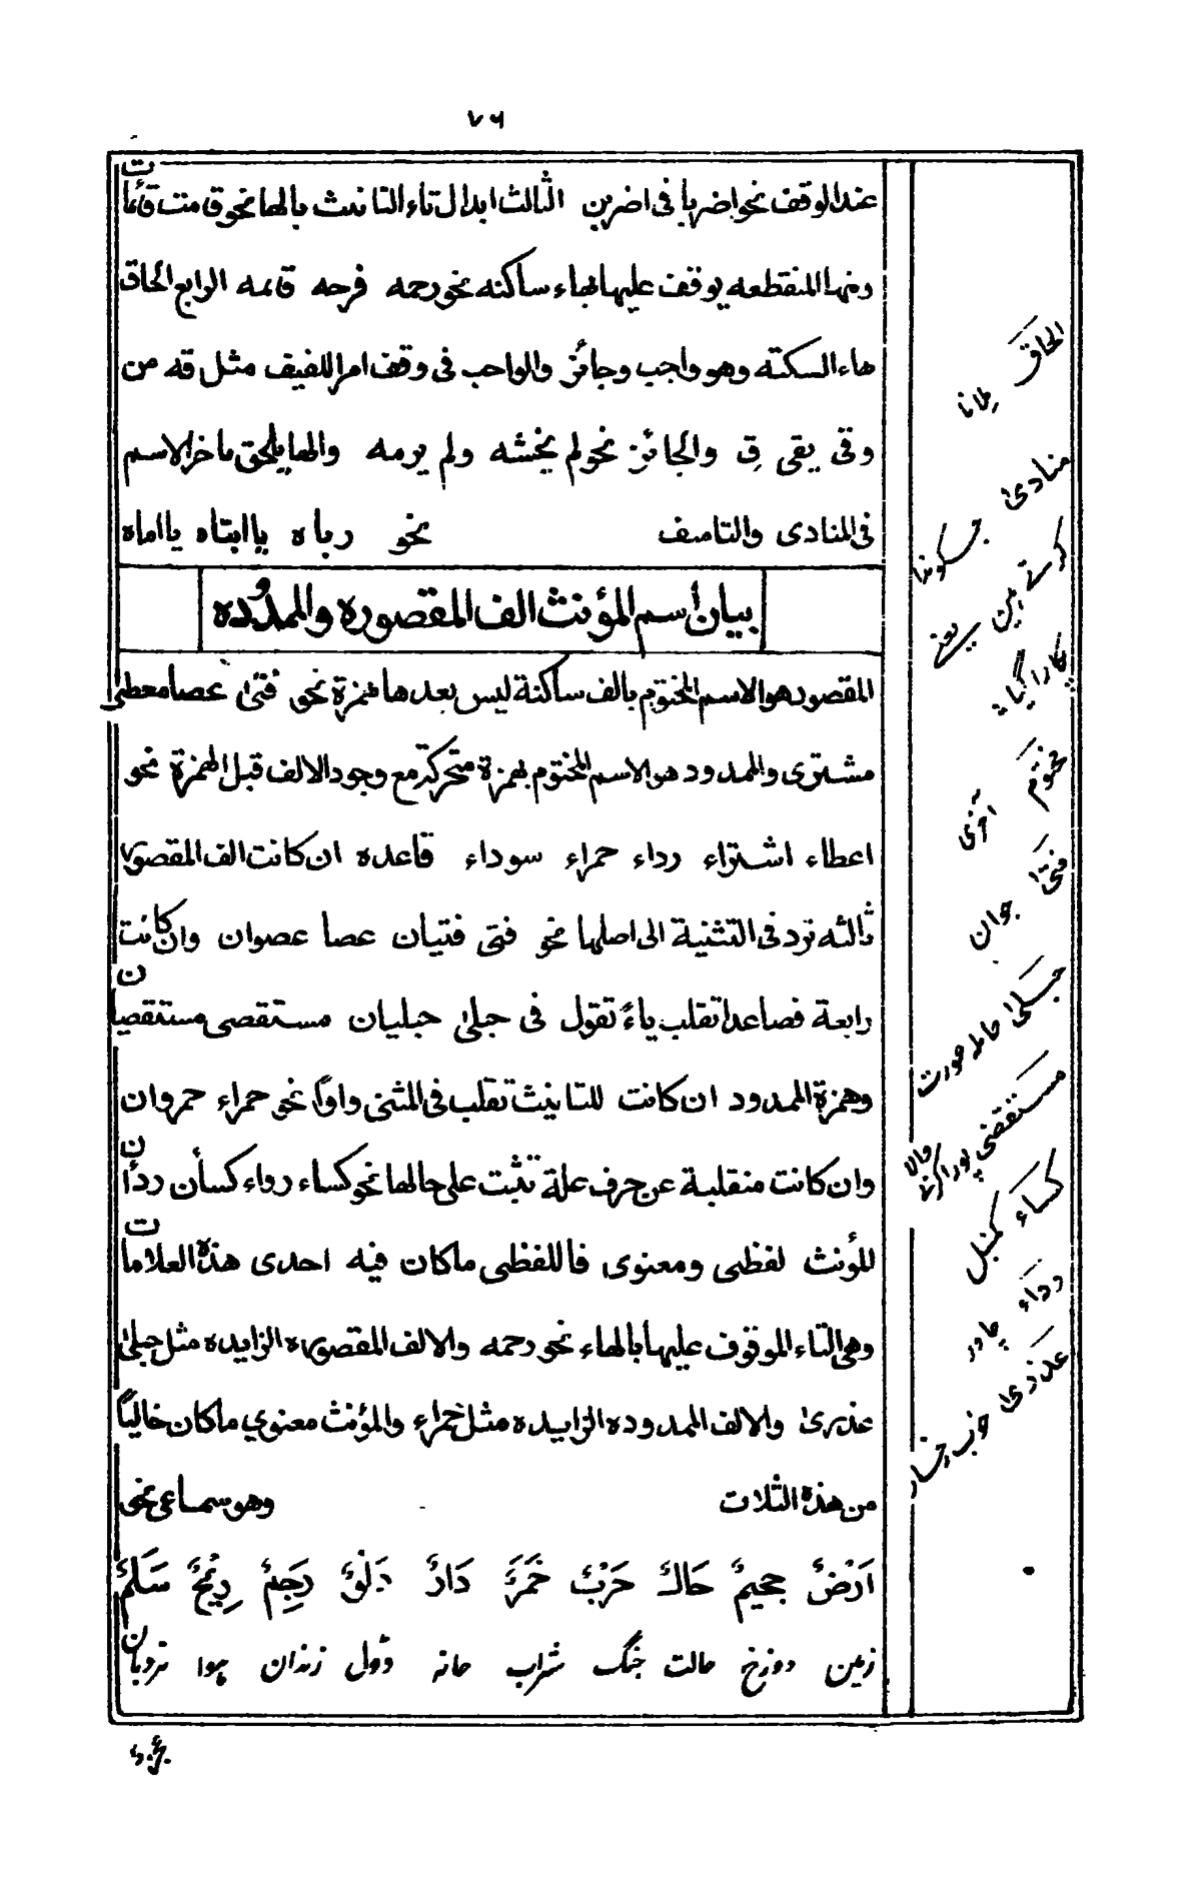 ٧٦
عند الوقف نحو اضربا فى اضربن الثالث ابدال تاء التانيث بالها نحو قامت قائمات
ومنها المنقطعه يوقف عليها بهاء ساكنه نحو رحمه فرحه قائمه الرابع الحاق
هاء السكته وهو واجب وجائز والواجب فى وقف امر اللفيف مثل قه من
وقى يقى ق والجائز نحو لم يخشه ولم يرمه والها يلحق باخر الاسم
فى المنادى والتاسف نحو رباه يا ابتاه يا اماه
بيان أسم المؤنث الف المقصوره والممدوده
المقصور هو الاسم المختوم بالف ساكنة ليس بعدها همزة نحو فتىٰ عصا معطىٰ
مشترى والممدود هو الاسم المختوم بهمزة متحركة مع وجود الالف قبل الهمزة نحو
اعطاء اشتراء رداء حمراء سوداء قاعده ان كانت الف المقصور
ثالثه ترد فى التثنية الى اصلها نحو فتى فتيان عصا عصوان وان كانت
رابعة فصاعدا تقلب ياءً تقول فى حبلىٰ حبليان مستقصى مستقصيان
وهمزة الممدود ان كانت للتانيث تقلب فى المثنى واوًا نحو حمراء حمروان
وان كانت منقلبة عن حرف علة تثبت على حالها نحو كساء رداء كسأن ردأن
للمؤنث لفظى ومعنوى فاللفظى ماكان فيه احدى هذه العلامات
وهى التاء الموقوف عليها بالهاء نحو رحمه والالف المقصوره الزايده مثل حبلىٰ
عذرىٰ والالف الممدوده الزايده مثل حمراء والمؤنث معنوي ماكان خاليًا
من هذه الثلات وهو سماعى نحى
اَرْضٌ جحيمٌ حَالٌ حَرْبٌ خَمَرٌ دَارٌ دَلْوٌ رَحِمٌ رِيْحٌ سَلَمٌ
زمین دوزخ حالت جنگ شراب خانہ ڈول زندان ہوا نردبان
الحاق ملانا
منادىٰ جسکو ندا
کرتے ہیں یعنے
پکارا گیا
مختوم آخری
فتىٰ جوان
حبلىٰ حاملہ عورت
مستقصٰى پورا کرنے والا
کساء کمبل
رداء چادر
عذرىٰ